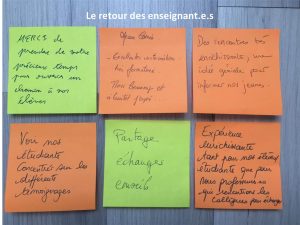 Le retour des enseignant.e.s
MERCI de
prendre de votre
précieux temps
pour ouvrir un
chemin à nos
élèves
Excellente intervention
très formatrice
Des rencontres très
enrichissantes, une
idée géniale pour
informer nos jeunes...
Voir nos
étudiants
concentrés sur les
différents
témoignages
Partage
échanger
conseils
Expérience
enrichissante
tant pour nos
étudiants que pour
nous professeurs
qui
collègues pour échanger